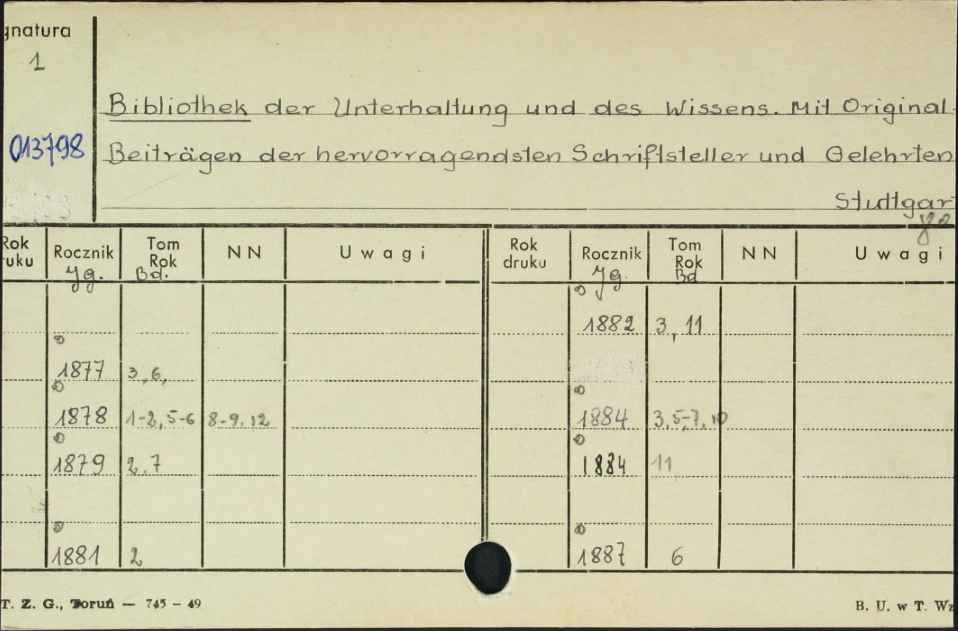 gnatura
1
013798
Bibliothek der Unterhaltung und des Wissens. Mit Original-
Beiträgen der hervorragendsten Schriftsteller und Gelehrten
Stuttgar
8º
Rok ruku Rocznik Tom Rok NN Uwagi Rok druku Rocznik Tom Rok NN Uwagi
Jg. Bd. Jg. Bd
1882 3, 11
1877 3, 6,
1878 1-2, 5-6 8-9, 12 1884 3, 5-7, 10
1879 2, 7 1884 11
1881 2 1887 6
T. Z. G., Toruń — 745 - 49 B. U. w T. Wz